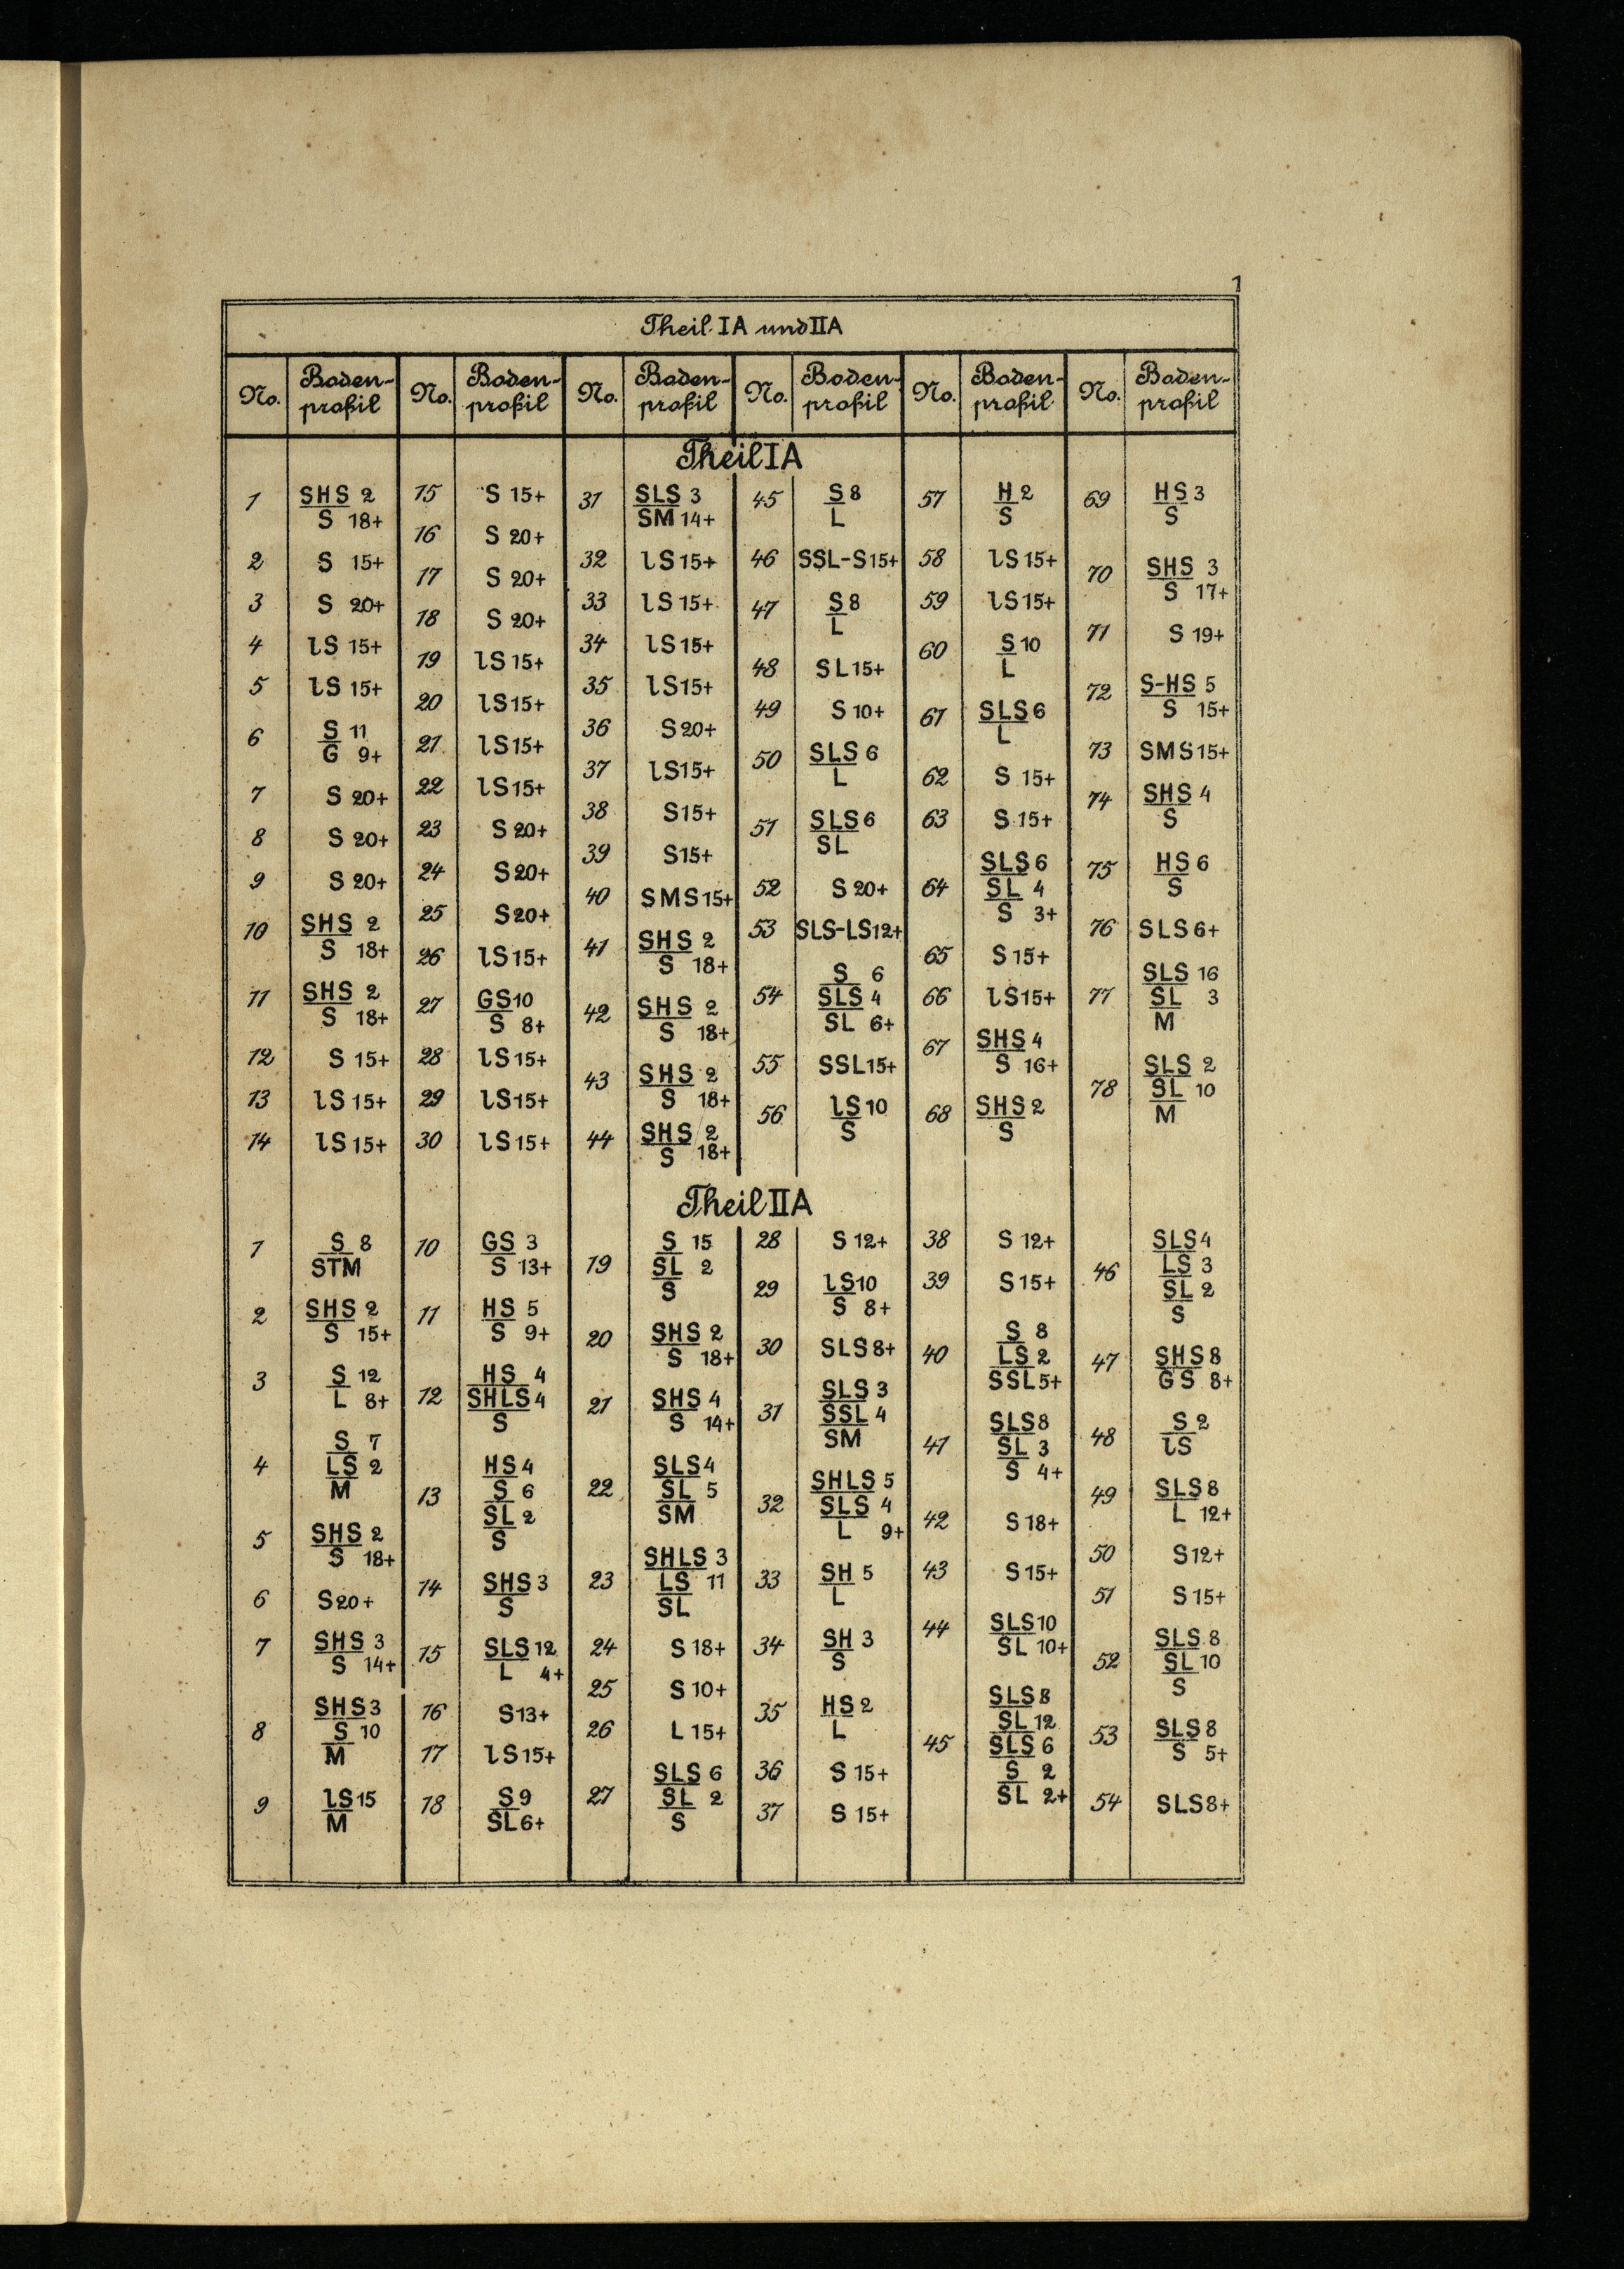 1
Theil IA und IIA
No. Boden-profil No. Boden-profil No. Boden-profil No. Boden-profil No. Boden-profil No. Boden-profil
Theil IA
1 SHS 2
S 18+
2 S 15+
3 S 20+
4 lS 15+
5 lS 15+
6 S 11
G 9+
7 S 20+
8 S 20+
9 S 20+
10 SHS 2
S 18+
11 SHS 2
S 18+
12 S 15+
13 lS 15+
14 lS 15+
15 S 15+
16 S 20+
17 S 20+
18 S 20+
19 lS 15+
20 lS 15+
21 lS 15+
22 lS 15+
23 S 20+
24 S 20+
25 S 20+
26 lS 15+
27 GS 10
S 8+
28 lS 15+
29 lS 15+
30 lS 15+
31 SLS 3
SM 14+
32 lS 15+
33 lS 15+
34 lS 15+
35 lS 15+
36 S 20+
37 lS 15+
38 S 15+
39 S 15+
40 SMS 15+
41 SHS 2
S 18+
42 SHS 2
S 18+
43 SHS 2
S 18+
44 SHS 2
S 18+
45 S 8
L
46 SSL-S 15+
47 S 8
L
48 SL 15+
49 S 10+
50 SLS 6
L
51 SLS 6
SL
52 S 20+
53 SLS-LS 12+
54 S 6
SLS 4
SL 6+
55 SSL 15+
56 lS 10
S
57 H 2
S
58 lS 15+
59 lS 15+
60 S 10
L
61 SLS 6
L
62 S 15+
63 S 15+
64 SLS 6
SL 4
S 3+
65 S 15+
66 lS 15+
67 SHS 4
S 16+
68 SHS 2
S
69 HS 3
S
70 SHS 3
S 17+
71 S 19+
72 S-HS 5
S 15+
73 SMS 15+
74 SHS 4
S
75 HS 6
S
76 SLS 6+
77 SLS 16
SL 3
M
78 SLS 2
SL 10
M
Theil IIA
1 S 8
STM
2 SHS 2
S 15+
3 S 12
L 8+
4 S 7
LS 2
M
5 SHS 2
S 18+
6 S 20+
7 SHS 3
S 14+
8 SHS 3
S 10
M
9 lS 15
M
10 GS 3
S 13+
11 HS 5
S 9+
12 HS 4
SHLS 4
S
13 HS 4
S 6
SL 2
S
14 SHS 3
S
15 SLS 12
L 4+
16 S 13+
17 lS 15+
18 S 9
SL 6+
19 S 15
SL 2
S
20 SHS 2
S 18+
21 SHS 4
S 14+
22 SLS 4
SL 5
SM
23 SHLS 3
LS 11
SL
24 S 18+
25 S 10+
26 L 15+
27 SLS 6
SL 2
S
28 S 12+
29 lS 10
S 8+
30 SLS 8+
31 SLS 3
SSL 4
SM
32 SHLS 5
SLS 4
L 9+
33 SH 5
L
34 SH 3
S
35 HS 2
L
36 S 15+
37 S 15+
38 S 12+
39 S 15+
40 S 8
LS 2
SSL 5+
41 SLS 8
SL 3
S 4+
42 S 18+
43 S 15+
44 SLS 10
SL 10+
45 SLS 8
SL 12
SLS 6
S 2
SL 2+
46 SLS 4
LS 3
SL 2
S
47 SHS 8
GS 8+
48 S 2
lS
49 SLS 8
L 12+
50 S 12+
51 S 15+
52 SLS 8
SL 10
S
53 SLS 8
S 5+
54 SLS 8+